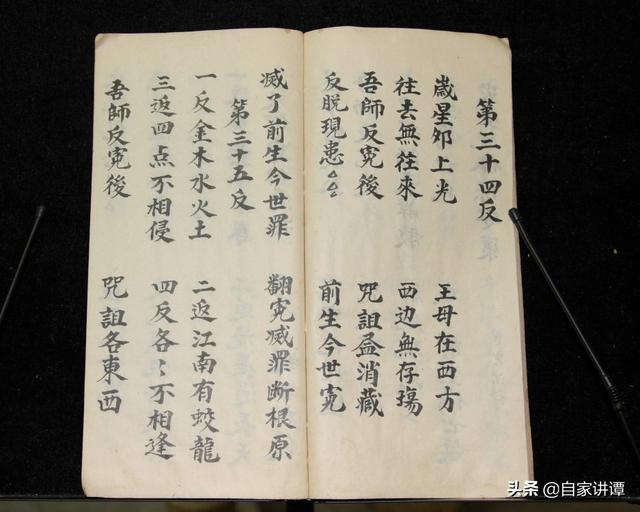 第三十四反
歲星邜上光　王母在西方
往去無往來　西边無存
吾師反寃後　咒詛盈消藏
反脱現患△△　前生今世寃
滅了前生今世罪　翻寃滅罪断根原
第三十五反
一反金木水火土　二返江南有蛟龍
三返四点不相侵　四反各〻不相逢
吾師反寃後　咒詛各東西
头条 @自家讲谭